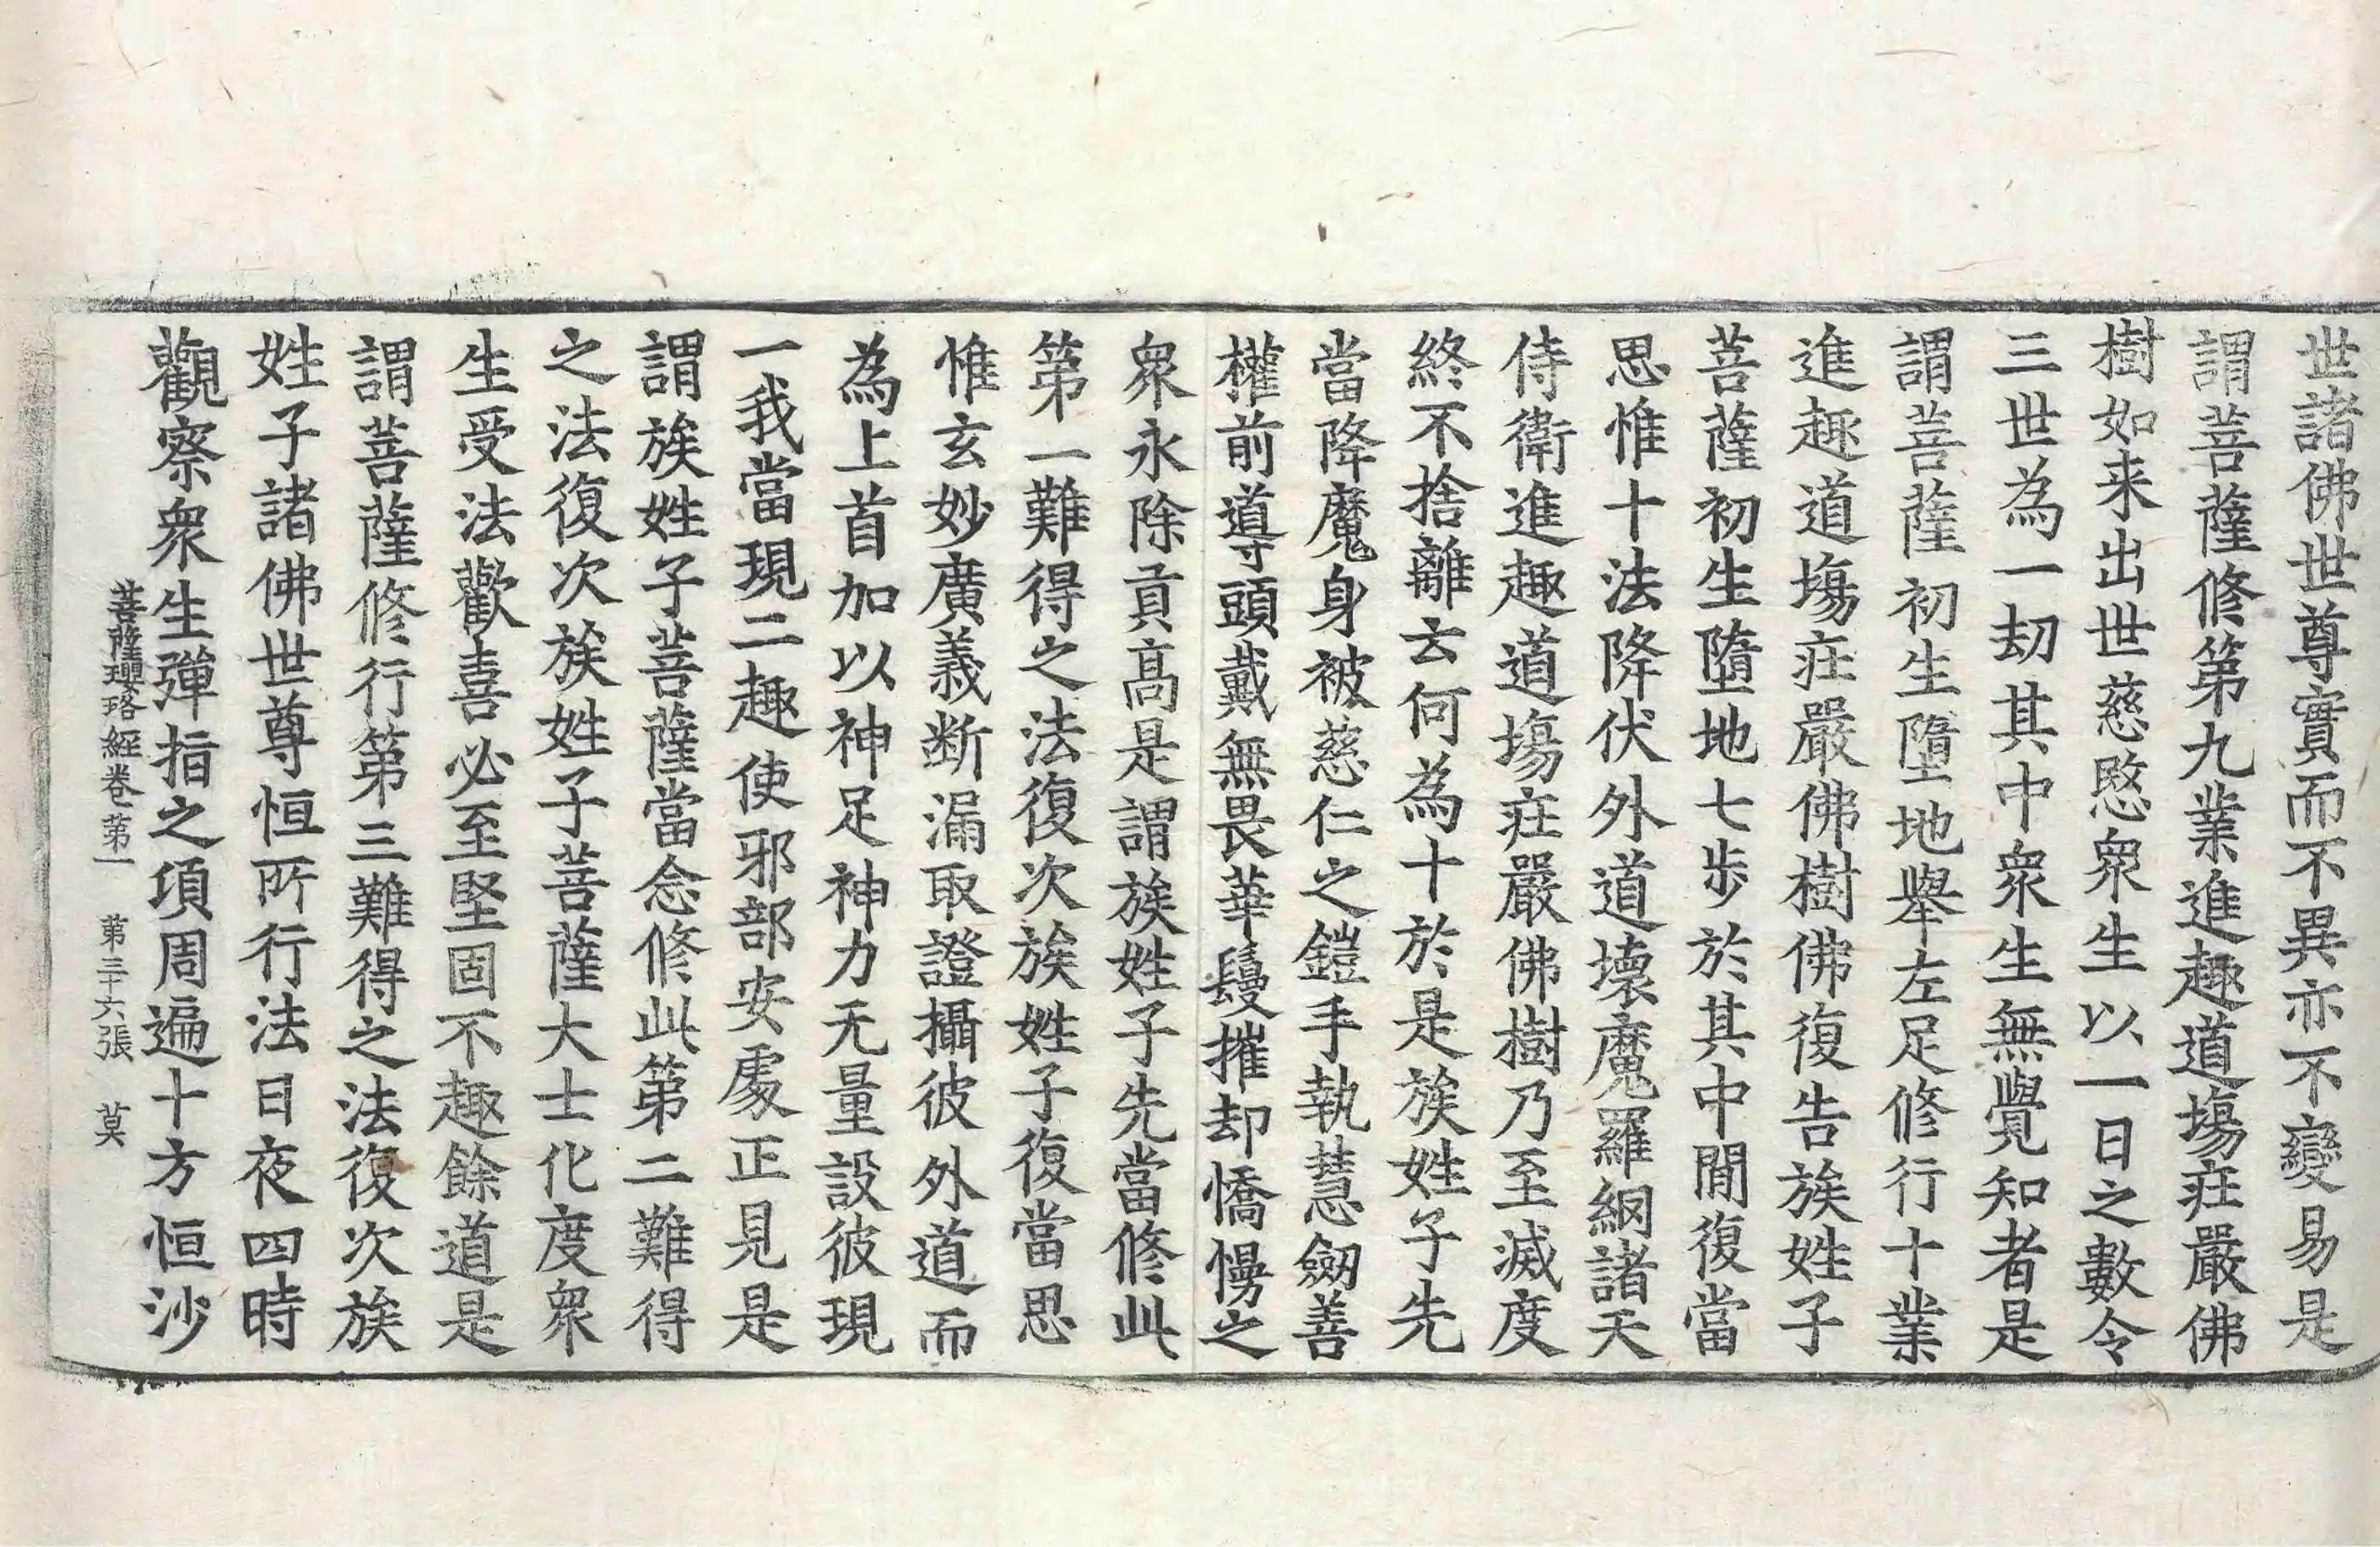 世諸佛世尊實而不異亦不變易是
謂菩薩修第九業進趣道場莊嚴佛
樹如来出世慈愍衆生以一日之數令
三世為一劫其中衆生無覺知者是
謂菩薩初生墮地舉左足修行十業
進趣道場莊嚴佛樹佛復告族姓子
菩薩初生墮地七步於其中間復當
思惟十法降伏外道壞魔羅網諸天
侍衛進趣道場莊嚴佛樹乃至滅度
終不捨離云何為十於是族姓子先
當降魔身被慈仁之鎧手執慧劒善
權前導頭戴無畏華鬘摧却憍慢之
衆永除貢高是謂族姓子先當修此
第一難得之法復次族姓子復當思
惟玄妙廣義断漏取證攝彼外道而
為上首加以神足神力无量設彼現
一我當現二趣使邪部安處正見是
謂族姓子菩薩當念修此第二難得
之法復次族姓子菩薩大士化度衆
生受法歡喜必至堅固不趣餘道是
謂菩薩修行第三難得之法復次族
姓子諸佛世尊恒所行法日夜四時
觀察衆生彈指之項周遍十方恒沙
菩薩瓔珞經卷第一 第三十六張 莫